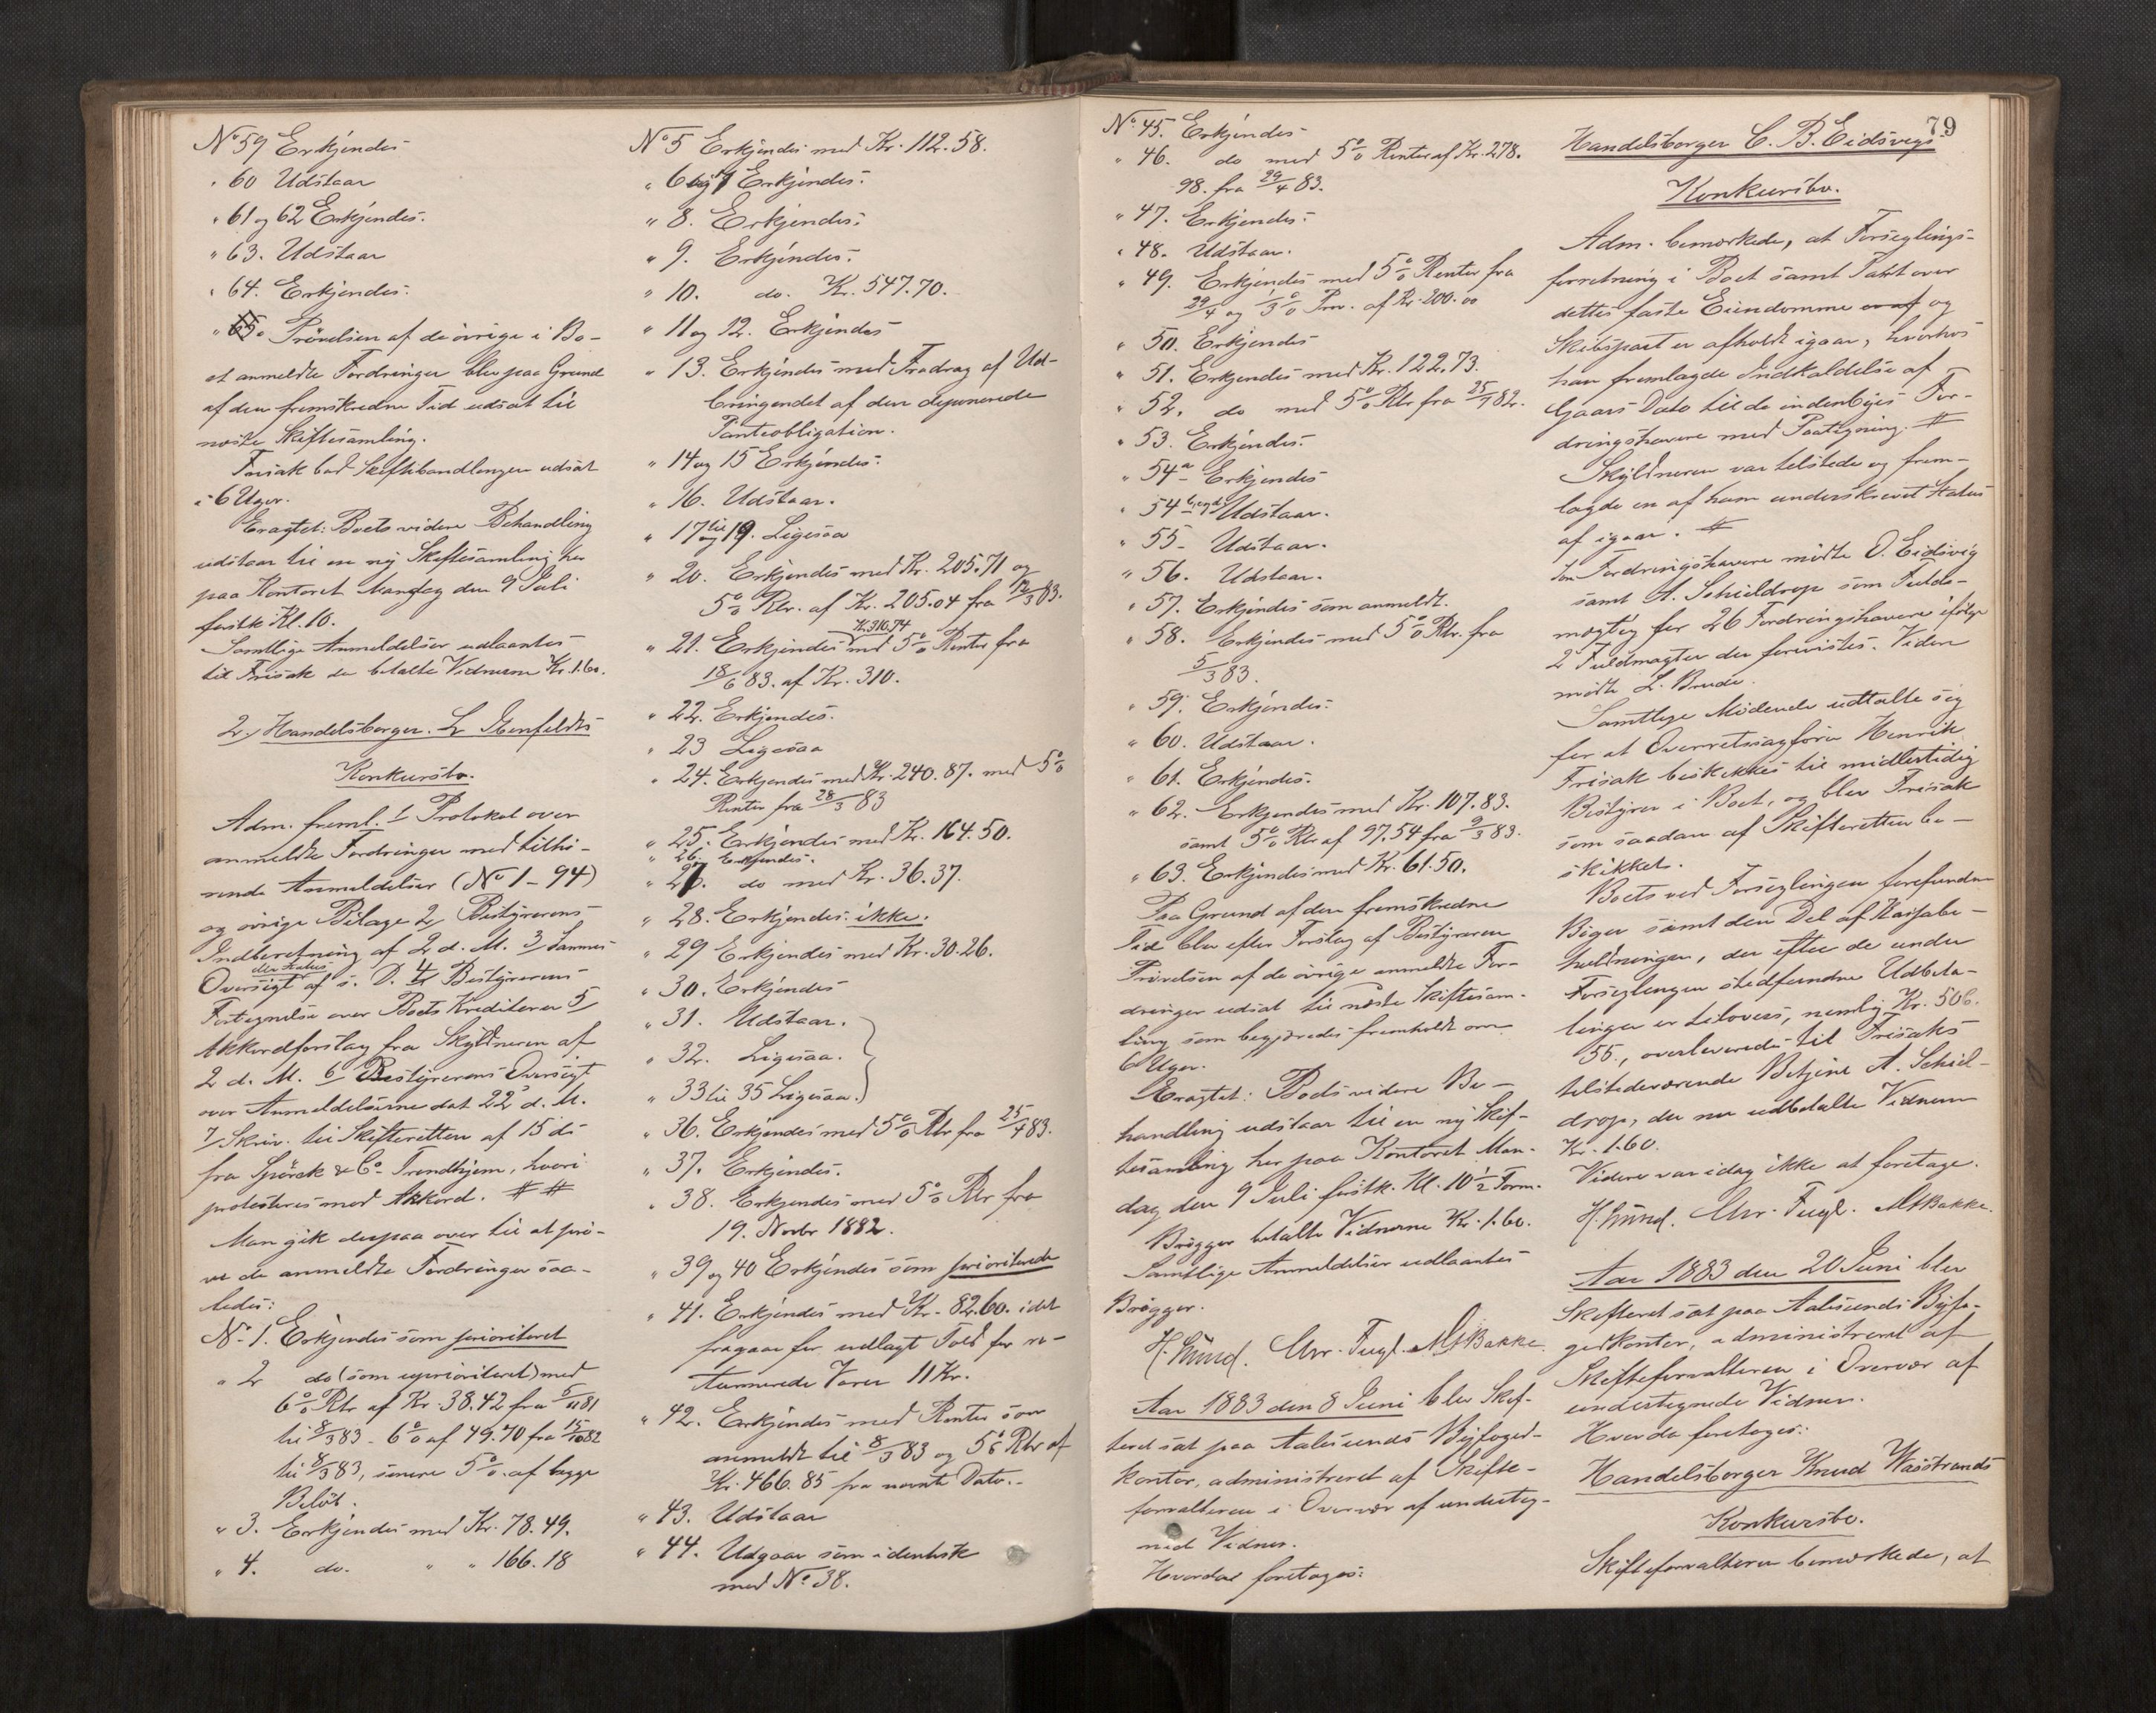 No 59 Erkjendes
" 60 Udstaar
" 61 og 62 Erkjendes.
" 63. Udstaar
" 64. Erkjendes.
" 65. Prövelsen af de övrige i Bo-
et anmeldte Fordringer blev paa Grund
af den fremskredne Tid udsat til
næste Skiftesamling.
Frisak bad Skiftebehandlingen udsat
i 6 Uger.
Eragtet: Boets videre Behandling
udstaar til en ny Skiftesamling her
paa Kontoret Mandag den 9 Juli
förstk. Kl. 10.
Samtlige Anmeldelser udlaantes
til Frisak der betalte Vidnerne Kr. 1.60.
2, Handelsborger L.
Konkursbo.
Adm. freml. 1 Protokol over
anmeldte Fordringer med tilhö-
rende Anmeldelser (No 1-94)
og övrige Bilage 2, Bestyrerens
Indberetning af 2 d. M. 3, Sammes
Oversigt over Status af s. D. 4, Bestyrerens
Fortegnelse over Boets Kreditorer 5,
Akkordforslag fra Skyldneren af
2 d. M. 6, Bestyrerens Oversigt
over Anmeldelserne dat 22 d. M.
7, Skriv. til Skifteretten af 15 ds
fra Spörck & Co. Trondhjem, hvori
protesteres mod Akkord. # #
Man gik derpaa over til at prö-
ve de anmeldte Fordringer saa-
ledes:
No 1. Erkjendes som prioriteret
" 2 do (som uprioriteret) med
6% Rtr af Kr. 38.42 fra 5/11 81
til 8/3 83 - 6% af 49.70 fra 15/10 82
til 8/3 83, senere 5% af begge
Belöb.
" 3. Erkjendes med Kr. 78.49.
" 4. do. " " 166.18
No 5 Erkjendes med Kr. 112.58.
" 6 og 7 Erkjendes.
" 8. Erkjendes.
" 9. Erkjendes.
" 10. do. Kr. 547.70.
" 11 og 12. Erkjendes
" 13. Erkjendes med Fradrag af Ud-
bringendet af den deponerede
Panteobligation.
" 14 og 15 Erkjendes.
" 16. Udstaar.
" 17 til 19. Ligesaa
" 20. Erkjendes med Kr. 205.71 og
5% Rtr. af Kr. 205.04 fra 12/3 83.
" 21. Erkjendes Kr. 310.74 med 5% Renter fra
18/6 83. af Kr. 310.
" 22. Erkjendes.
" 23 Ligesaa
" 24. Erkjendes med Kr. 240.87. med 5%
Renter fra 28/3 83
" 25. Erkjendes med Kr. 164.50.
" 26. Erkjendes.
" 27. do med Kr. 36.37.
" 28. Erkjendes ikke.
" 29 Erkjendes med Kr. 30.26.
" 30. Erkjendes
" 31. Udstaar.
" 32. Ligesaa.
" 33 til 35 Ligesaa.
" 36. Erkjendes med 5% Rtr fra 25/4 83.
" 37. Erkjendes.
" 38. Erkjendes med 5% Rtr fra
19. Novbr 1882.
" 39 og 40 Erkjendes som prioriterede
" 41. Erkjendes med Kr. 82.60. idet
fragaar for udlagt Told for re-
tournerede Varer 11 Kr.
" 42. Erkjendes med Renter som
anmeldt til 8/3 83 og 5% Rtr af
Kr. 466.85 fra nævnte Dato.
" 43. Udstaar
" 44. Udgaar som identisk
med No 38.
79
No 45. Erkjendes
" 46. do med 5% Renter af Kr. 278.
98. fra 29/4 83.
" 47. Erkjendes.
" 48. Udstaar.
" 49. Erkjendes med 5% Renter fra
29/4 og 1/3% Prov. af Kr. 200.00
" 50. Erkjendes
" 51. Erkjendes med Kr. 122.73.
" 52. do med 5% Rtr fra 25/7 82.
" 53. Erkjendes.
" 54 a Erkjendes
" 54 b og c Udstaar.
" 55 Udstaar.
" 56. Udstaar.
" 57. Erkjendes som anmeldt.
" 58. Erkjendes med 5% Rtr. fra
5/3 83.
" 59. Erkjendes.
" 60. Udstaar.
" 61. Erkjendes.
" 62. Erkjendes med Kr. 107.83.
samt 5% Rtr af 97.54 fra 9/3 83.
" 63. Erkjendes med Kr. 61.50.
Paa Grund af den fremskredne
Tid blev efter Forslag af Bestyreren
Prövelsen af de övrige anmeldte For-
dringer udsat til næste Skiftesam-
ling som begjæredes fremholdt om
6 Uger.
Eragtet: Boets videre Be-
handling udstaar til en ny Skif-
tesamling her paa Kontoret Man-
dag den 9 Juli förstk. Kl. 10 1/2 Form.
Brögger betalte Vidnerne Kr. 1.60.
Samtlige Anmeldelser udlaantes
Brögger.
Chr. Fugl. Bakke.
Aar 1883 den 8 Juni blev Skif-
teret sat paa Aalesunds Byfoged-
kontor, administreret af Skifte-
forvalteren i Overvær af underteg-
nede Vidner.
Hvorda foretoges:
Handelsborger C. B. Eidsvigs
Konkursbo.
Adm. bemærkede, at Forseglings-
forretning i Boet samt Taxt over
dettes faste Eiendomme og
Skibspart er afholdt igaar, hvorhos
han fremlagde Indkaldelse af
Gaars Dato til de indenbyes For-
dringshavere med Paategning. #
Skyldneren var tilstede og frem-
lagde en af ham underskrevet Status
af igaar. #
Som Fordringshavere mödte O. Eidsvig
samt A. Schieldrop som Fuld-
mægtig for 26 Fordringshavere ifölge
2 Fuldmagter der forevistes. Videre
mödte L. Brude.
Samtlige Mödende udtalte sig
for at Overretssagförer Henrik
Frisak beskikkes til midlertidig
Bestyrer i Boet, og blev Frisak
som saadan af Skifteretten be-
skikket.
Boets ved Forseglingen forefundne
Böger samt den Del af Kassabe-
holdningen, der efter de under
Forseglingen stedfundne Udbeta-
linger er tilovers, nemlig Kr. 506.
55., overleveredes til Frisaks
tilstedeværende Betjent A. Schiel-
drop, der nu udbetalte Vidnerne
Kr. 1.60.
Videre var idag ikke at foretage.
Chr. Fugl. Bakke.
Aar 1883 den 20 Juni blev
Skifteret sat paa Aalesunds Byfo-
gedkontor, administreret af
Skifteforvalteren i Overvær af
undertegnede Vidner.
Hvorda foretoges:
Handelsborger Knud Waastrands
Konkursbo.
Skifteforvalteren bemærkede, at